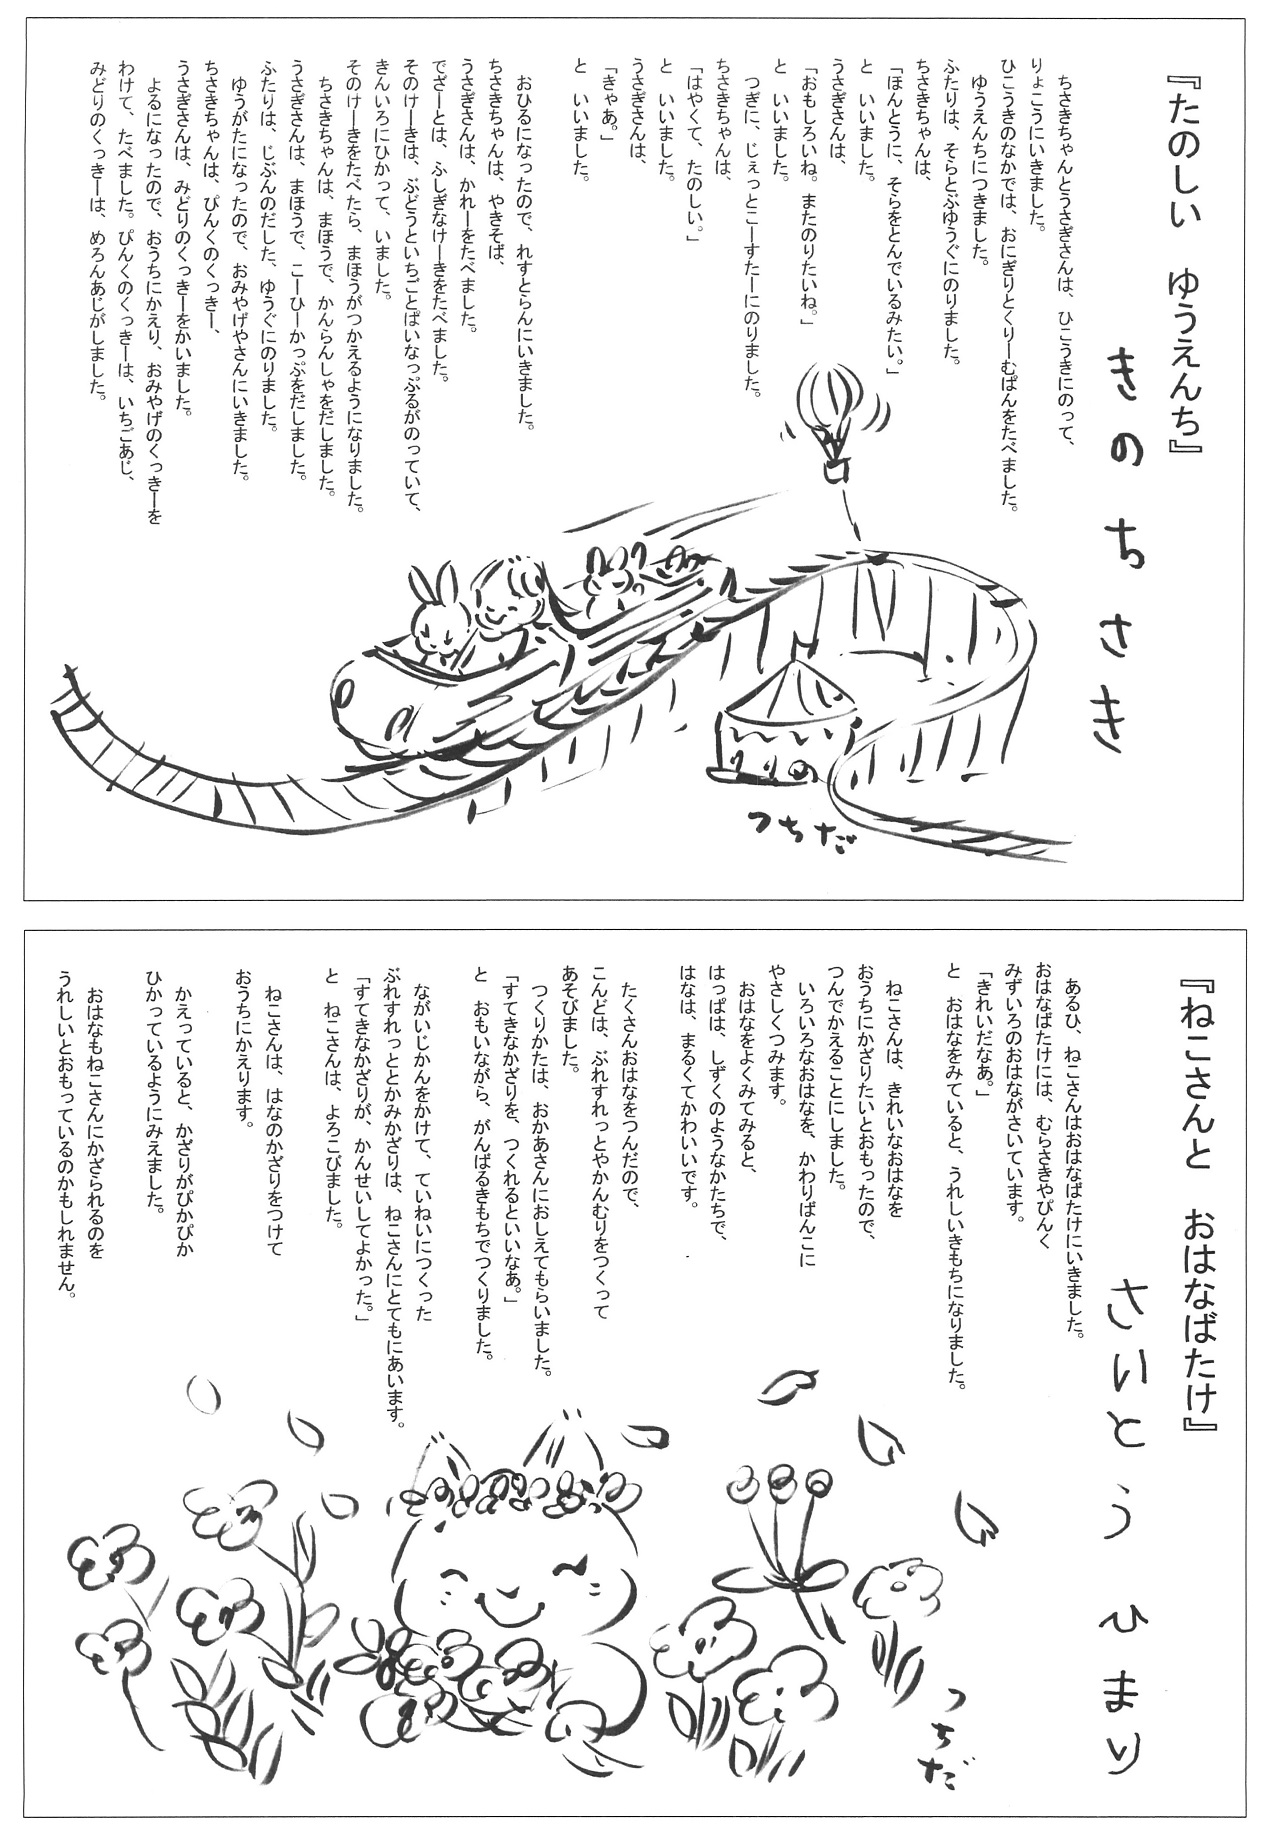 『たのしい　ゆうえんち』
きの ちさき
ちさきちゃんとうさぎさんは、ひこうきにのって、
りょこうにいきました。
ひこうきのなかでは、おにぎりとくりーむぱんをたべました。
ゆうえんちにつきました。
ふたりは、そらとぶゆうぐにのりました。
ちさきちゃんは、
「ほんとうに、そらをとんでいるみたい。」
と　いいました。
うさぎさんは、
「おもしろいね。またのりたいね。」
と　いいました。
つぎに、じぇっとこーすたーにのりました。
ちさきちゃんは、
「はやくて、たのしい。」
と　いいました。
うさぎさんは、
「きゃあ。」
と　いいました。
おひるになったので、れすとらんにいきました。
ちさきちゃんは、やきそば、
うさぎさんは、かれーをたべました。
でざーとは、ふしぎなけーきをたべました。
そのけーきは、ぶどうといちごとぱいなっぷるがのっていて、
きんいろにひかって、いました。
そのけーきをたべたら、まほうがつかえるようになりました。
ちさきちゃんは、まほうで、かんらんしゃをだしました。
うさぎさんは、まほうで、こーひーかっぷをだしました。
ふたりは、じぶんのだした、ゆうぐにのりました。
ゆうがたになったので、おみやげやさんにいきました。
ちさきちゃんは、ぴんくのくっきー、
うさぎさんは、みどりのくっきーをかいました。
よるになったので、おうちにかえり、おみやげのくっきーを
わけて、たべました。ぴんくのくっきーは、いちごあじ、
みどりのくっきーは、めろんあじがしました。
つちだ
『ねこさんと　おはなばたけ』
さいとう ひまり
あるひ、ねこさんはおはなばたけにいきました。
おはなばたけには、むらさきやぴんく
みずいろのおはながさいています。
「きれいだなあ。」
と　おはなをみていると、うれしいきもちになりました。
ねこさんは、きれいなおはなを
おうちにかざりたいとおもったので、
つんでかえることにしました。
いろいろなおはなを、かわりばんこに
やさしくつみます。
おはなをよくみてみると、
はっぱは、しずくのようなかたちで、
はなは、まるくてかわいいです。
たくさんおはなをつんだので、
こんどは、ぶれすれっとやかんむりをつくって
あそびました。
つくりかたは、おかあさんにおしえてもらいました。
「すてきなかざりを、つくれるといいなあ。」
と　おもいながら、がんばるきもちでつくりました。
ながいじかんをかけて、ていねいにつくった
ぶれすれっととかみかざりは、ねこさんにとてもにあいます。
「すてきなかざりが、かんせいしてよかった。」
と　ねこさんは、よろこびました。
ねこさんは、はなのかざりをつけて
おうちにかえります。
かえっていると、かざりがぴかぴか
ひかっているようにみえました。
おはなもねこさんにかざられるのを
うれしいとおもっているのかもしれません。
つちだ